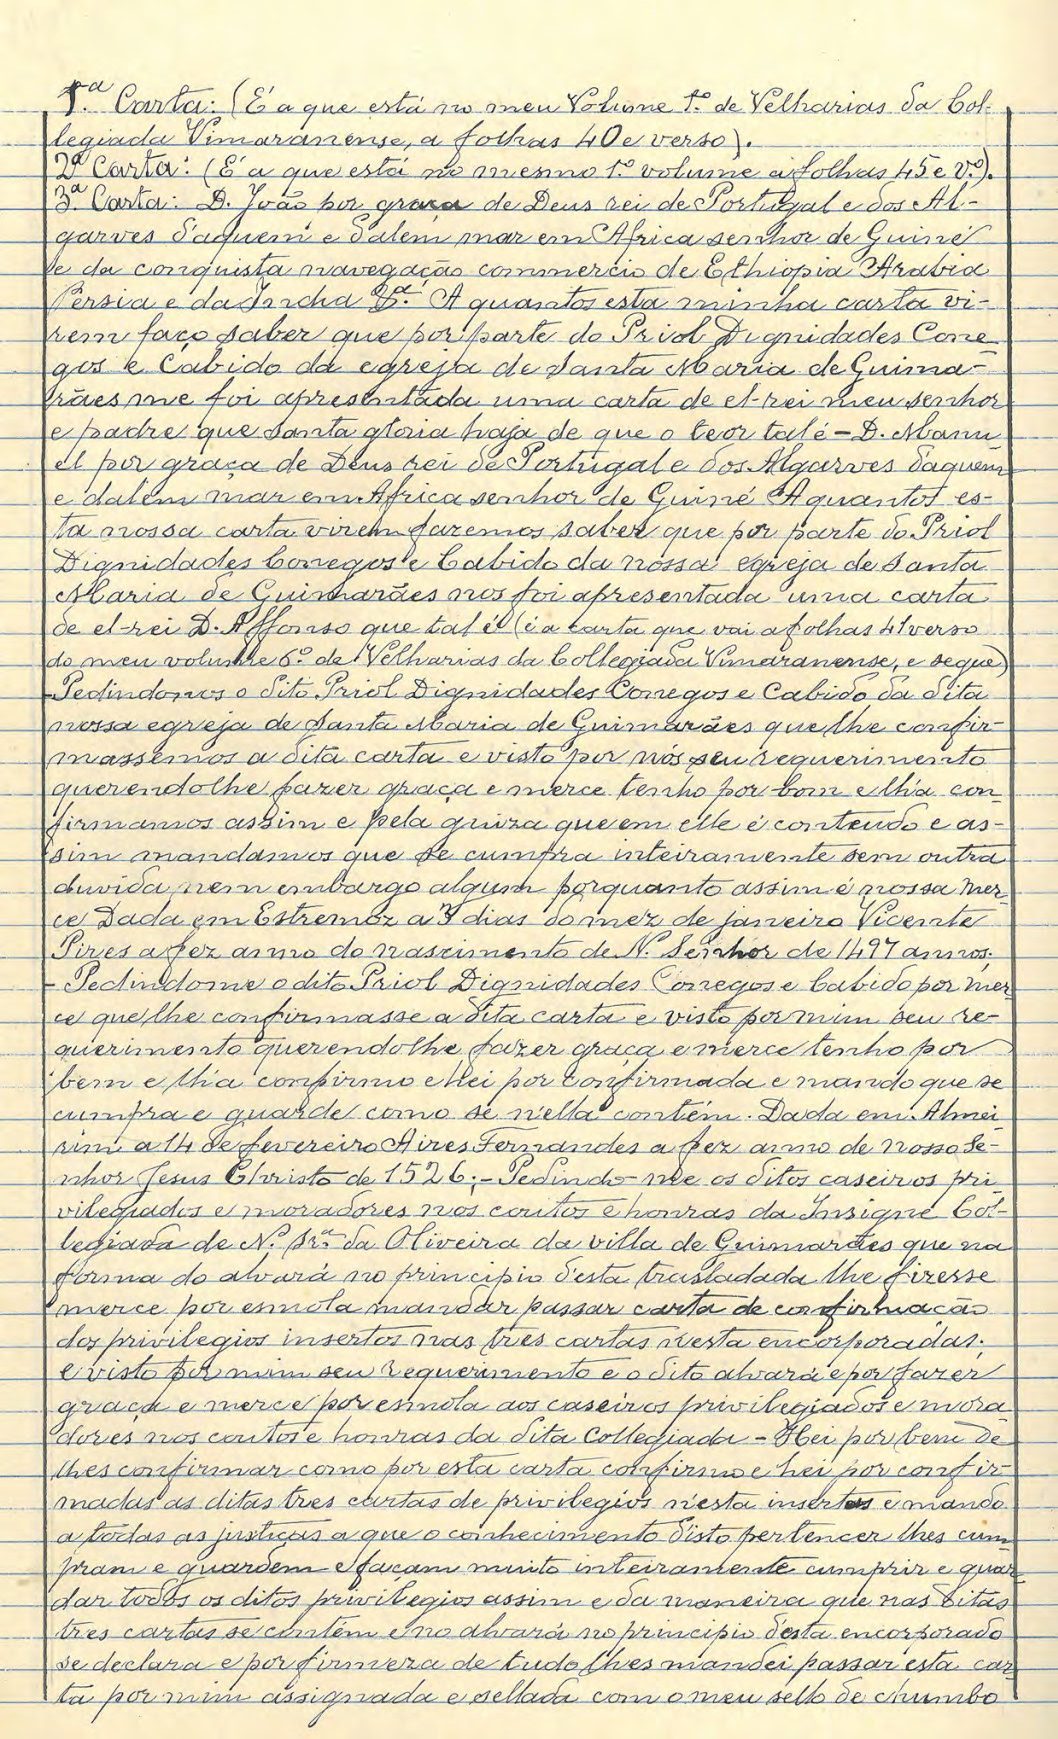 1.ª Carta: (É a que está no meu Volume 1.º de Velharias da Col-
legiada Vimaranense, a folhas 40 e verso).
2ª Carta: (É a que está no mesmo 1.º volume a folhas 45 e v.º).
3.ª Carta: D. João por graça de Deus rei de Portugal e dos Al-
garves d'aquem e d'alem mar em Africa senhor de Guiné
e da conquista navegação commercio de Ethiopia Arabia
Persia e da India &.ª A quantos esta minha carta vi-
rem faço saber que por parte do Priol Dignidades Cone-
gos e Cabido da egreja de Santa Maria de Guima-
rães me foi apresentada uma carta de el-rei meu senhor
e padre que santa gloria haja de que o teor tal é - D. Manu
el por graça de Deus rei de Portugal e dos Algarves d'aquem
e dalem mar em Africa senhor de Guiné A quantos es-
ta nossa carta virem fazemos saber que por parte do Priol
Dignidades Conegos e Cabido da nossa egreja de Santa
Maria de Guimarães nos foi apresentada uma carta
de el-rei D. Affonso que tal é (é a carta que vai a folhas 41 verso
do meu volume 6.º de Velharias da Collegiada Vimaranense, e segue)
- Pedindo-nos o dito Priol Dignidades Conegos e Cabido da dita
nossa egreja de Santa Maria de Guimarães que lhe confir-
massemos a dita carta e visto por nós seu requerimento
querendolhe fazer graça e merce tenho por bom e lh'a con-
firmamos assim e pela guiza que em elle é conteudo e as-
sim mandamos que se cumpra inteiramente sem outra
duvida nem embargo algum porquanto assim é nossa mer-
ce Dada em Estremoz a 3 dias do mez de janeiro Vicente
Pires a fez anno do nascimento de N. Senhor de 1497 annos.
- Pedindome o dito Priol Dignidades Conegos e Cabido por mer
ce que lhe confirmasse a dita carta e visto por mim seu re-
querimento querendolhe fazer graça e merce tenho por
bem e lh'a confirmo e hei por confirmada e mando que se
cumpra e guarde como se n'ella contém. Dada em Almei
rim a 14 de fevereiro Aires Fernandes a fez anno de nosso Se-
nhor Jesus Christo de 1526; - Pedindo-me os ditos caseiros pri
vilegiados e moradores nos coutos e honras da Insigne Col-
legiada de N.ª Srª da Oliveira da villa de Guimarães que na
forma do alvará no principio d'esta trasladada lhe fizesse
merce por esmola mandar passar carta de confirmação
dos privilegios insertos nas tres cartas n'esta encorporadas;
e visto por mim seu requerimento e o dito alvará e por fazer
graça e merce por esmola aos caseiros privilegiados e mora
dores nos coutos e honras da dita Collegiada - Hei por bem de
lhes confirmar como por esta carta confirmo e hei por confir-
madas as ditas tres cartas de privilegios n'esta insertas e mando
a todas as justiças a que o conhecimento d'isto pertencer lhes cum
pram e guardem e façam muito inteiramente cumprir e guar
dar todos os ditos privilegios assim e da maneira que nas ditas
tres cartas se contém e no alvará no principio d'esta encorporado
se declara e por firmeza de tudo lhes mandei passar esta car
ta por mim assignada e sellada com o meu sello de chumbo